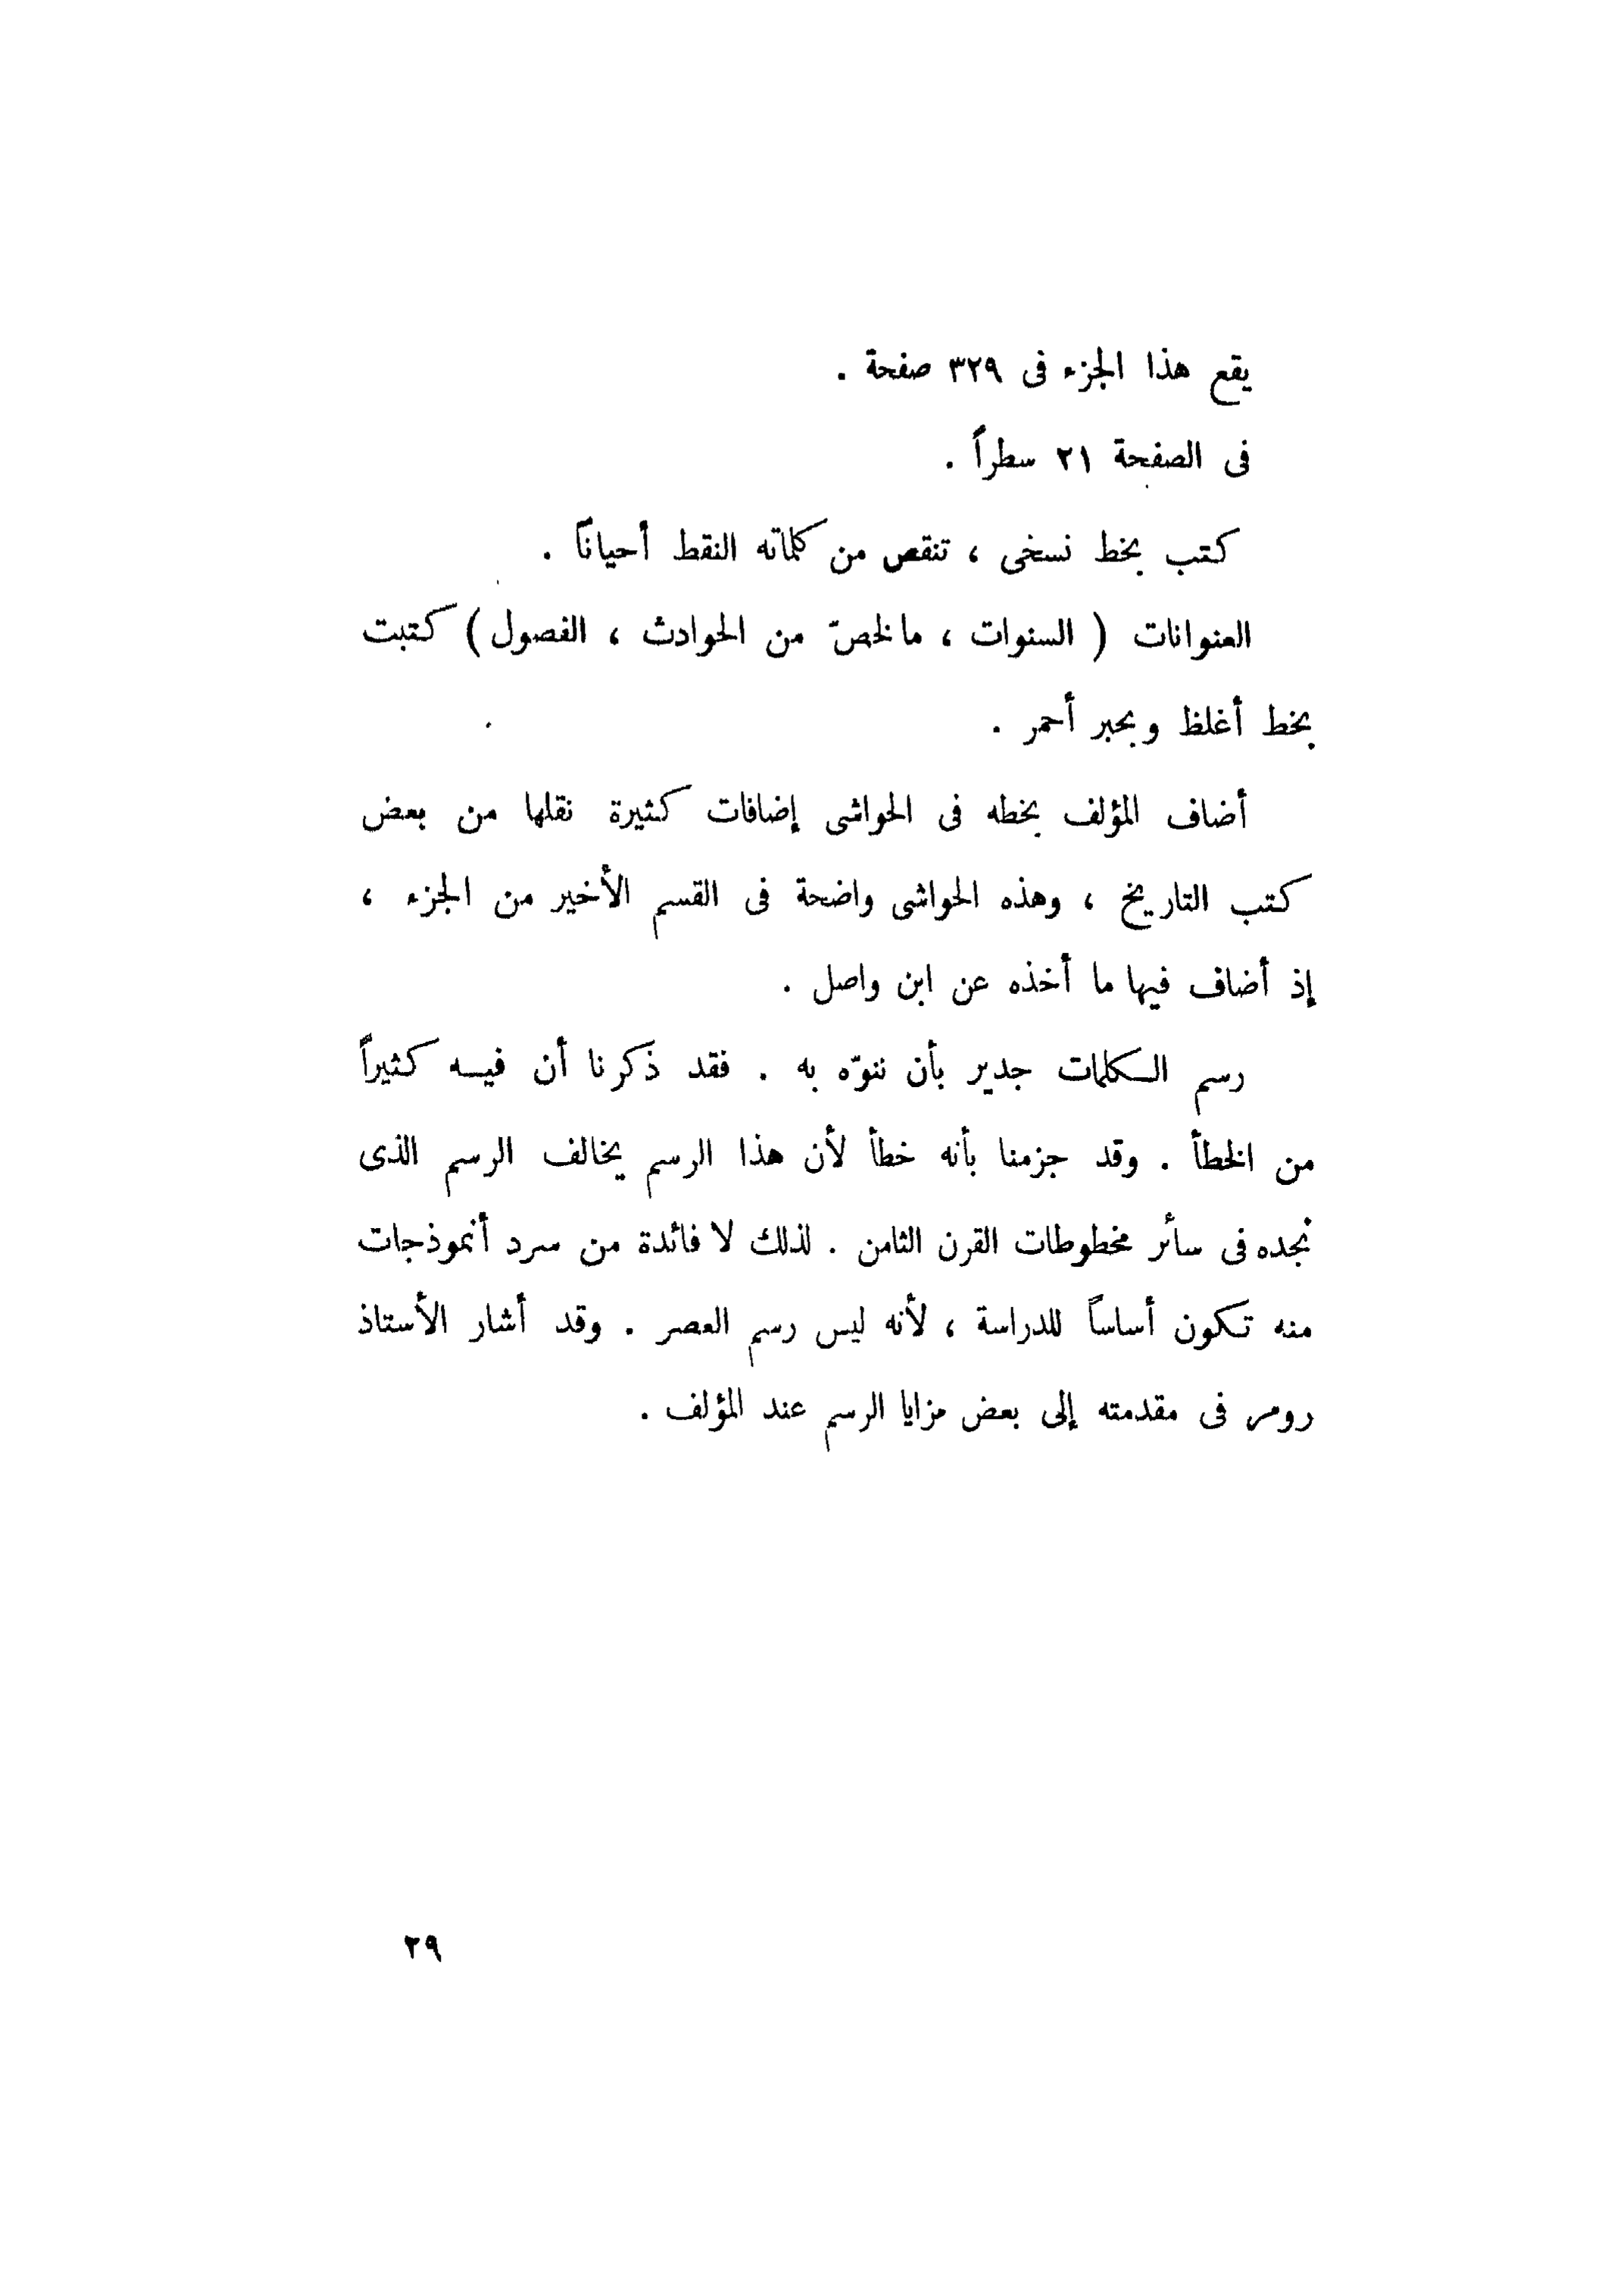 يقع هذا الجزء فى ٣٢٩ صفحة .
فى الصفحة ٢١ سطراً .
كتب بخط نسخى ، تنقص من كلماته النقط أحياناً .
العنوانات ( السنوات ، ما لخصّ من الحوادث ، الفصول ) كتبت
بخط أغلظ وبحبر أحمر .
أضاف المؤلف بخطه فى الحواشى إضافات كثيرة نقلها من بعض
كتب التاريخ ، وهذه الحواشى واضحة فى القسم الأخير من الجزء ،
إذ أضاف فيها ما أخذه عن ابن واصل .
رسم الكلمات جدير بأن ننوّه به . فقد ذكرنا أن فيه كثيراً
من الخطأ . وقد جزمنا بأنه خطأ لأن هذا الرسم يخالف الرسم الذى
نجده فى سائر مخطوطات القرن الثامن . لذلك لا فائدة من سرد أنموذجات
منه تكون أساساً للدراسة ، لأنه ليس رسم العصر . وقد أشار الأستاذ
رومر فى مقدمته إلى بعض مزايا الرسم عند المؤلف .
٢٩